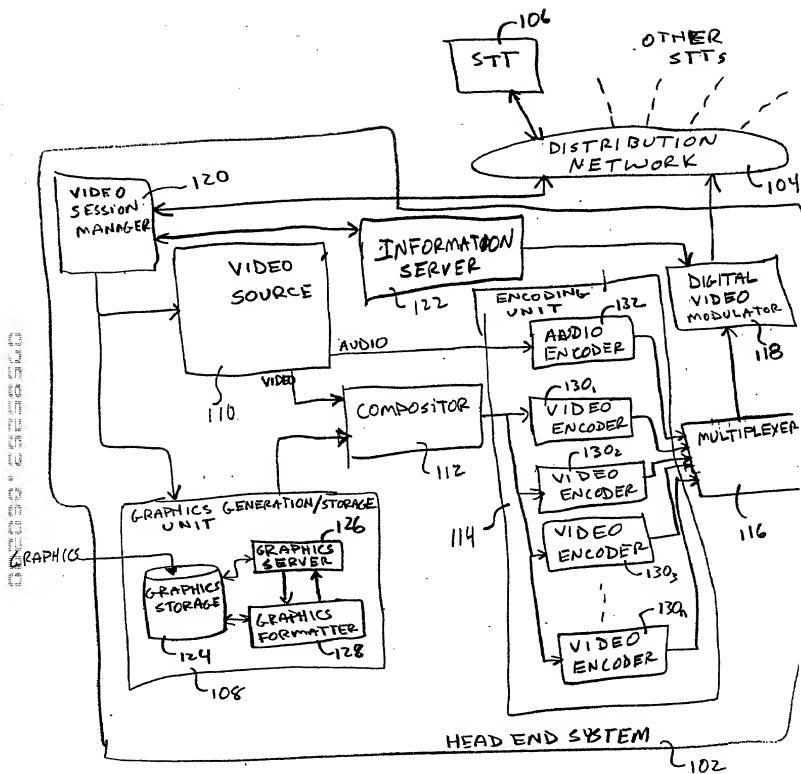 106
STT
OTHER
STTs
DISTRIBUTION
NETWORK
104
VIDEO
SESSION
MANAGER
120
VIDEO
SOURCE
110
INFORMATION
SERVER
122
ENCODING
UNIT
132
AUDIO
ENCODER
DIGITAL
VIDEO
MODULATOR
118
AUDIO
VIDEO
COMPOSITOR
112
130₁
VIDEO
ENCODER
130₂
VIDEO
ENCODER
114
VIDEO
ENCODER
130₃
130n
VIDEO
ENCODER
MULTIPLEXER
116
GRAPHICS GENERATION/STORAGE
UNIT
GRAPHICS
126
GRAPHICS
SERVER
GRAPHICS
STORAGE
124
GRAPHICS
FORMATTER
128
108
HEAD END SYSTEM
102